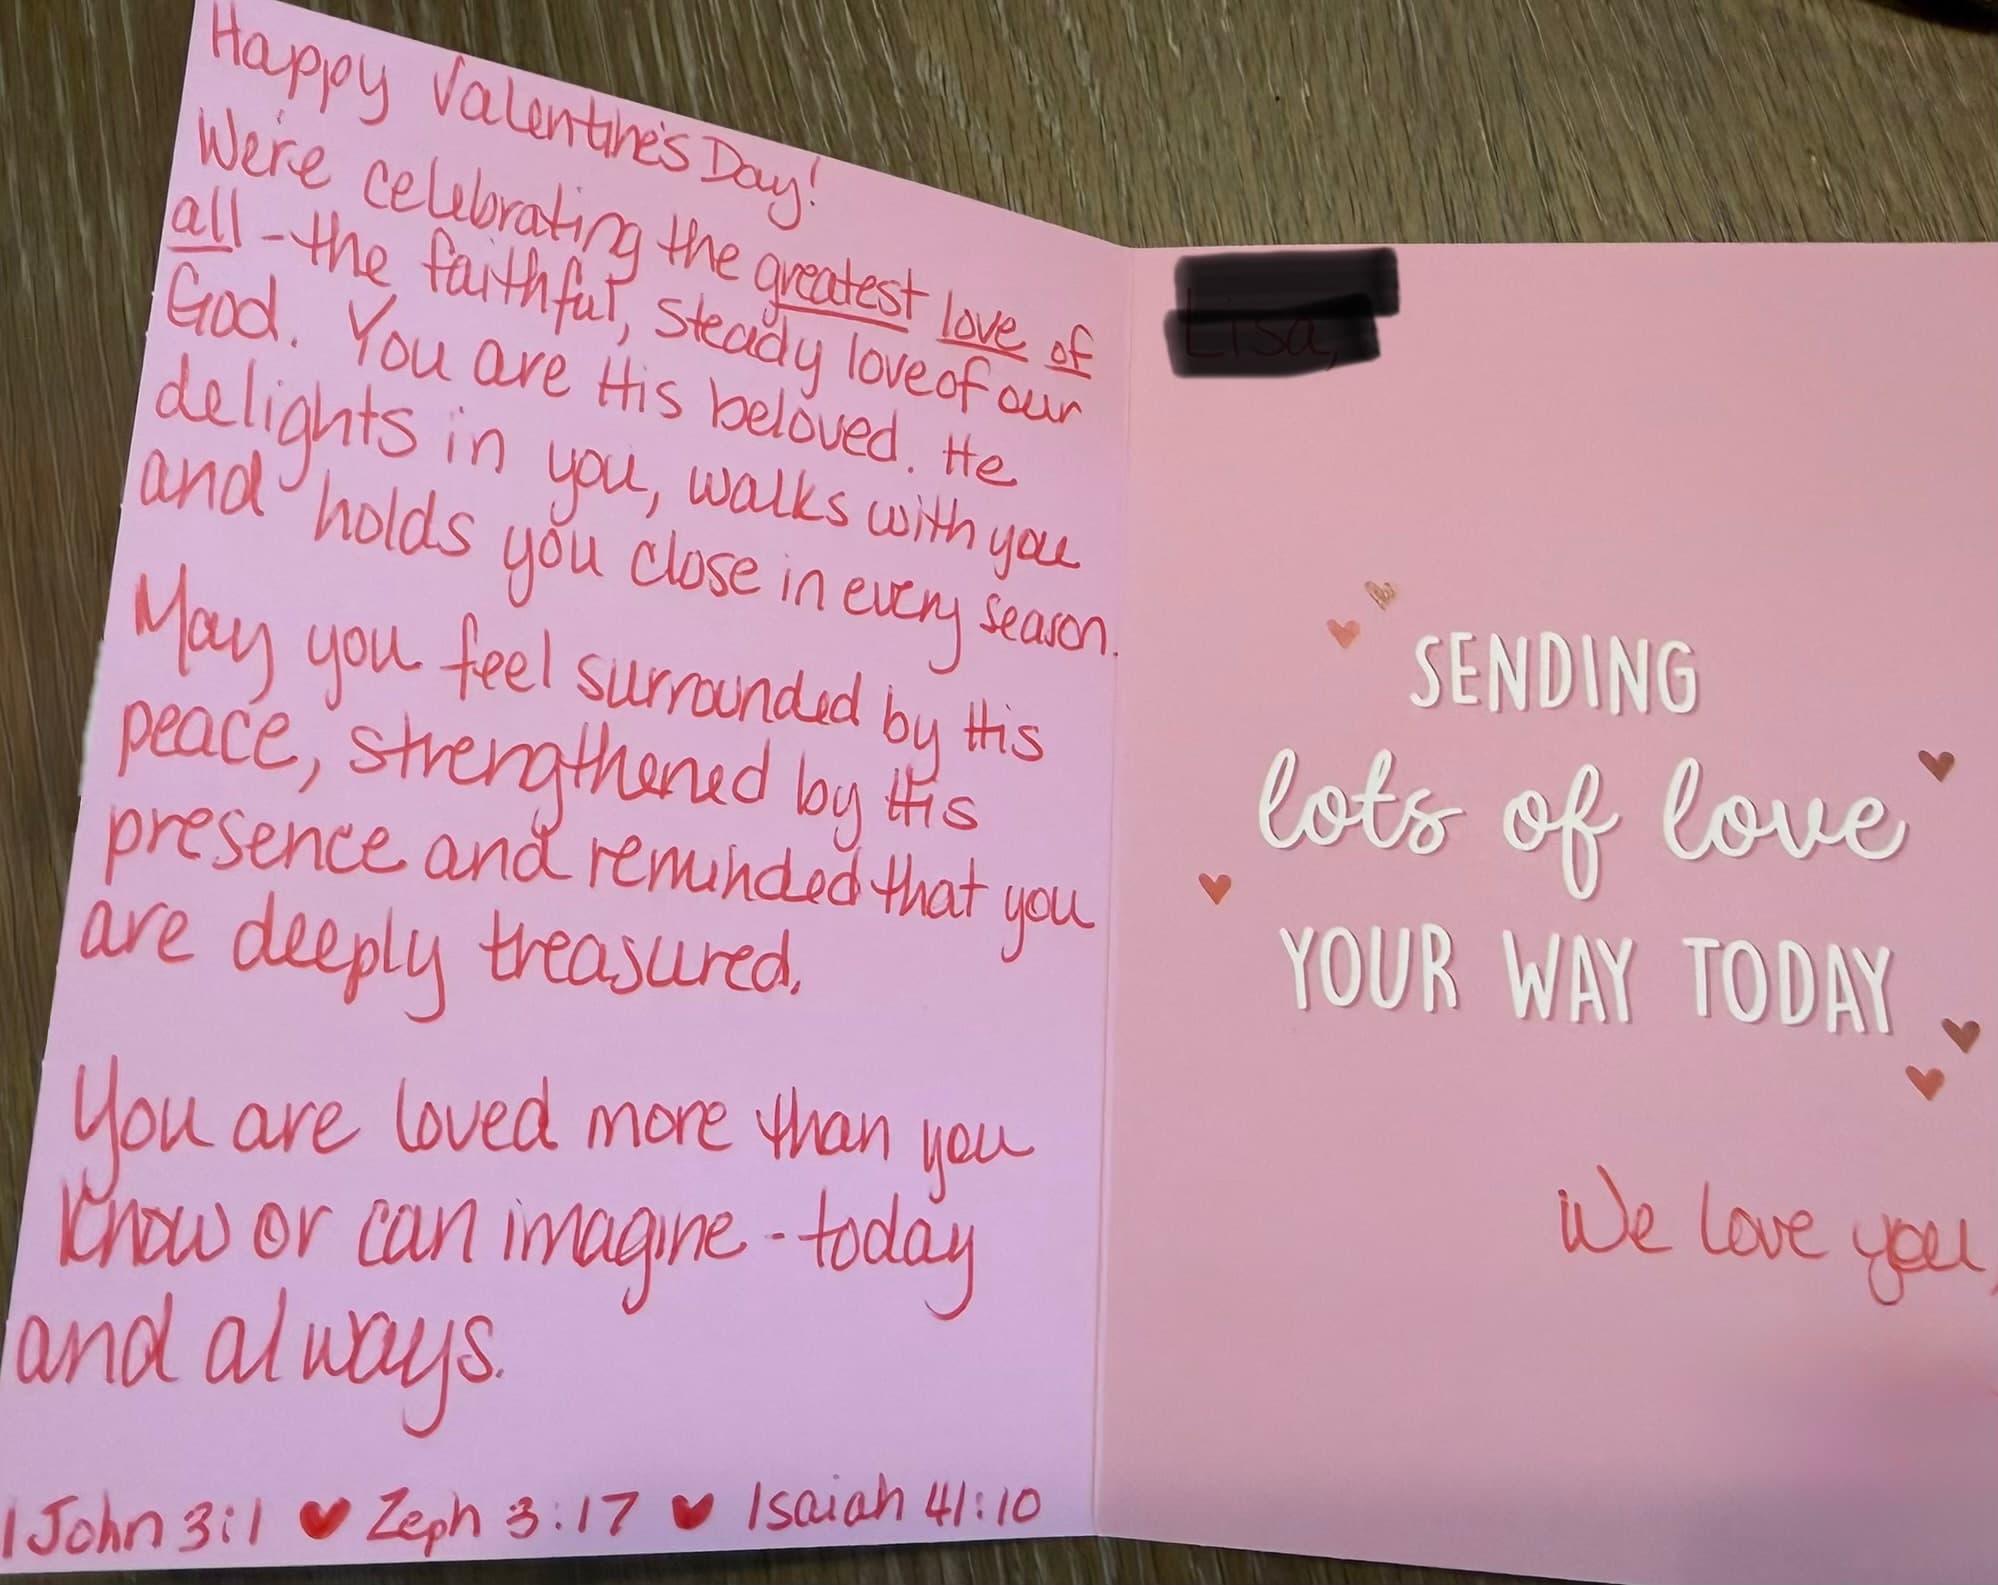 Happy Valentine's Day!
We're celebrating the greatest love of
all - the faithful, steady love of our
God. You are His beloved. He
delights in you, walks with you
and holds you close in every season.
May you feel surrounded by His
peace, strengthened by His
presence and reminded that you
are deeply treasured.
You are loved more than you
know or can imagine - today
and always.
1 John 3:1 ♥ Zeph 3:17 ♥ Isaiah 41:10
Lisa,
SENDING
lots of love
YOUR WAY TODAY
We love you,